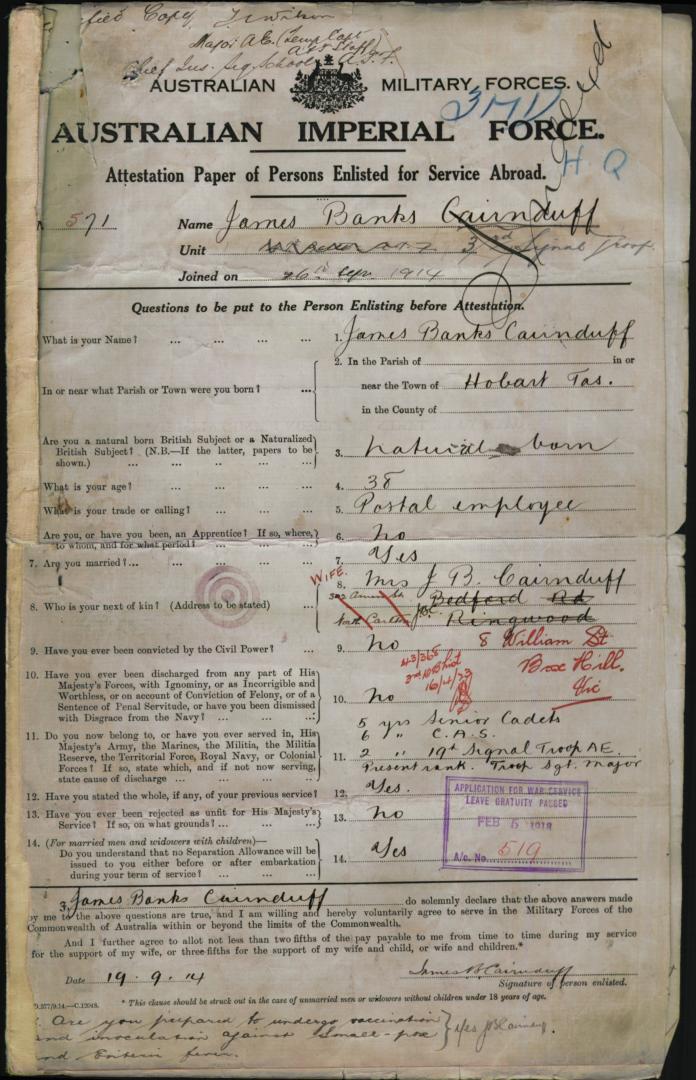 Copy
Major A.G. (Temp Capt
A & I Staff
Chief Ins. Sig School A.I.F.
AUSTRALIAN MILITARY FORCES.
3MD
AUSTRALIAN IMPERIAL FORCE.
H Q
Attestation Paper of Persons Enlisted for Service Abroad.
571 Name James Banks Cairnduff
Unit 3rd Signal Troop
Joined on 26th Sep. 1914
Questions to be put to the Person Enlisting before Attestation.
What is your Name? ... ... ... ... 1. James Banks Cairnduff
2. In the Parish of in or
In or near what Parish or Town were you born? ... near the Town of Hobart Tas.
in the County of
Are you a natural born British Subject or a Naturalized
British Subject? (N.B.—If the latter, papers to be
shown.) ... ... ... ... 3. natural born
What is your age? ... ... ... ... 4. 38
What is your trade or calling? ... ... ... 5. Postal employee
Are you, or have you been, an Apprentice? If so, where,
to whom, and for what period? ... ... ... 6. No
7. Are you married? ... ... ... ... 7. Yes
WIFE. 8. Mrs J. B. Cairnduff
8. Who is your next of kin? (Address to be stated) ... Bedford Rd
North Carlton Ringwood
9. Have you ever been convicted by the Civil Power? ... 9. No 8 William St
Box Hill.
Vic
16/4/23
10. Have you ever been discharged from any part of His
Majesty's Forces, with Ignominy, or as Incorrigible and
Worthless, or on account of Conviction of Felony, or of a
Sentence of Penal Servitude, or have you been dismissed
with Disgrace from the Navy? ... ... ... 10. No
11. Do you now belong to, or have you ever served in, His
Majesty's Army, the Marines, the Militia, the Militia
Reserve, the Territorial Force, Royal Navy, or Colonial
Forces? If so, state which, and if not now serving,
state cause of discharge ... ... ... 11.
5 yrs Senior Cadets
6 " C.A.S.
2 " 19th Signal Troop A.E.
Present rank. Troop Sgt. Major
12. Have you stated the whole, if any, of your previous service? 12. Yes.
13. Have you ever been rejected as unfit for His Majesty's
Service? If so, on what grounds? ... ... 13. No
14. (For married men and widowers with children)—
Do you understand that no Separation Allowance will be
issued to you either before or after embarkation
during your term of service? ... ... 14. Yes
APPLICATION FOR WAR SERVICE
LEAVE GRATUITY PASSED
FEB 5 1918
A/c. No. 519
James Banks Cairnduff do solemnly declare that the above answers made
by me to the above questions are true, and I am willing and hereby voluntarily agree to serve in the Military Forces of the
Commonwealth of Australia within or beyond the limits of the Commonwealth.
And I further agree to allot not less than two fifths of the pay payable to me from time to time during my service
for the support of my wife, or three-fifths for the support of my wife and child, or wife and children.*
Date 19.9.14 James B Cairnduff
Signature of person enlisted.
D.277/9.14.—C.12048. * This clause should be struck out in the case of unmarried men or widowers without children under 18 years of age.
Are you prepared to undergo vaccination
and inoculation against Small-pox
and Enteric fever. Yes